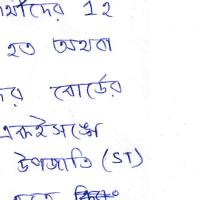 র্থীদের 12
হত অথবা
র বোর্ডের
একইসঙ্গে
উপজাতি (ST)
হতে